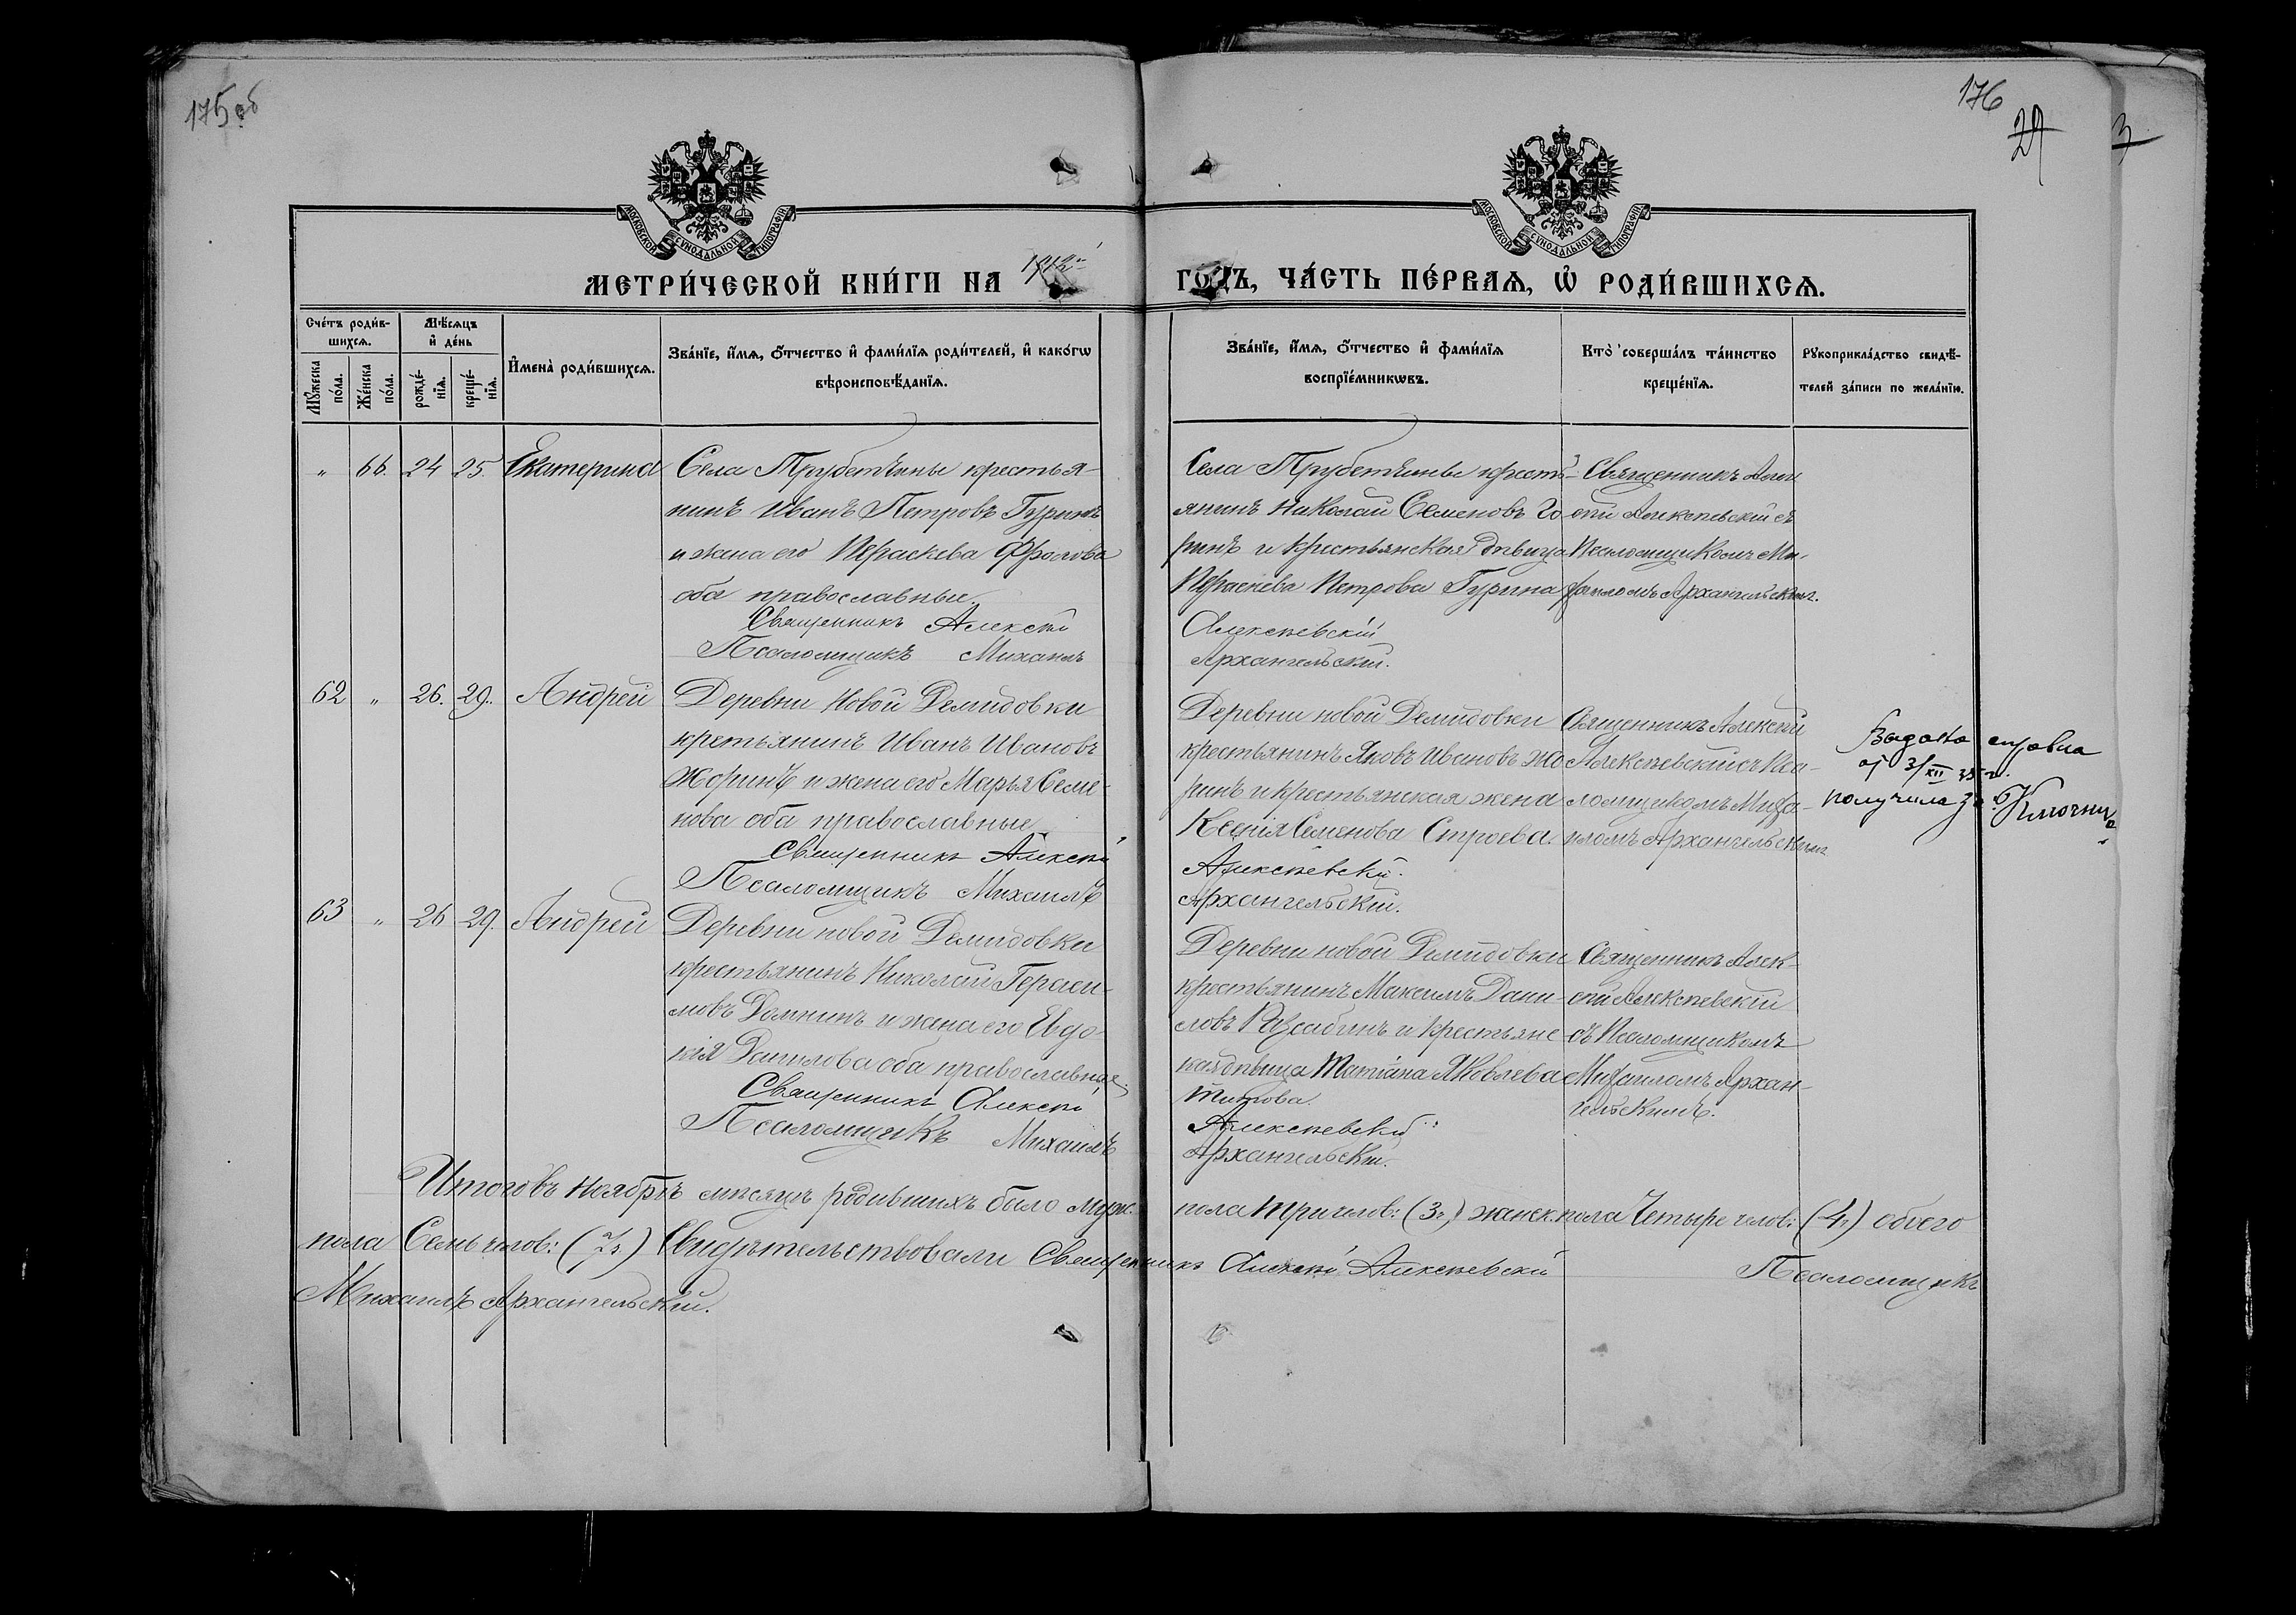 175 об
176
29
3
МОСКОВСКОЙ СѴНОДАЛЬНОЙ ТИПОГРАФІИ
МОСКОВСКОЙ СѴНОДАЛЬНОЙ ТИПОГРАФІИ
МЕТРИ́ЧЕСКОЙ КНИ́ГИ НА 1912й ГО́ДЪ, ЧА́СТЬ ПЕ́РВАѦ, Ѡ҆ РОДИ́ВШИХСѦ.
Сче́тъ роди́в-
шихсѧ.
Мѹ́жеска по́ла.
Же́нска по́ла.
Мѣ́сѧцъ и҆ де́нь
рожде́-нїѧ.
креще́-нїѧ.
И҆мена̀ роди́вшихсѧ.
Зва́нїе, и҆́мѧ, ѻ҆́тчество и҆ фами́лїѧ роди́телей, и҆ како́гѡ
вѣроисповѣ́данїѧ.
Зва́нїе, и҆́мѧ, ѻ҆́тчество и҆ фами́лїѧ
воспрїе́мникѡвъ.
Кто̀ соверша́лъ та́инство
креще́нїѧ.
Рѹкоприкла́дство свидѣ́-
телей за́писи по жела́нїю.
" 66. 24 25. Екатерина
Села Трубетчины крестья-
нинъ Иванъ Петровъ Гуринъ
и жена его Параскева Фролова
оба православные.
Священникъ Алексѣй
Псаломщикъ Михаилъ
Села Трубетчины кресть-
янинъ Николай Семеновъ
ринъ и крестьянская дѣвица
Параскева Петрова Гурина
Алексѣевскій
Архангельскій.
Священникъ Алек
сѣй Алексѣевскій съ
Псаломщикомъ Ми-
хаиломъ Архангельскимъ.
62 " 26. 29. Андрей
Деревни Новой Демидовки
крестьянинъ Иванъ Ивановъ
Жоринъ и жена его Марья Семе-
нова оба православные
Священникъ Алексѣй
Псаломщикъ Михаилъ
Деревни новой Демидовки
крестьянинъ Яковъ Ивановъ Жо
ринъ и крестьянская жена
Ксенія Семенова Строева.
Алексѣевскій.
Архангельскій.
Священникъ Алексѣй
Алексѣевскій съ Пса-
ломщикомъ Миха-
иломъ Архангельскимъ
Выдана справка
от 3/XII 35 г.
получила
63 " 26 29. Андрей
Деревни новой Демидовки
крестьянинъ Николай Гераси-
мовъ Домнинъ и жена его Евдо-
кія Данилова оба православные.
Священникъ Алексѣй
Псаломщикъ Михаилъ
Деревни новой Демидовки
крестьянинъ Максимъ Дани-
ловъ и крестьянс
кая дѣвица Татіана Яковлева
Титова.
Алексѣевскій
Архангельскій.
Священникъ Алек-
сѣй Алексѣевскій
съ Псаломщикомъ
Михаиломъ Архан-
гельскимъ.
Итого въ Ноябрѣ мѣсяцѣ родившихъ было муж. пола три челов: (3,) женск. пола Четыре челов: (4,) обоего
пола Семь челов: (7,) Свидѣтельствовали Священникъ Алексѣй Алексѣевскій Псаломщикъ
Михаилъ Архангельскій.